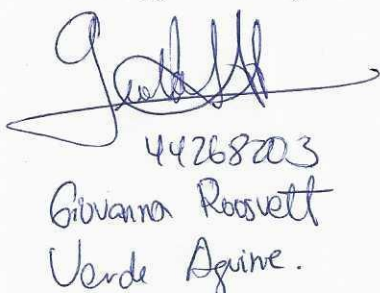 44268203
Giovanna Roosvett
Verde Aguirre.